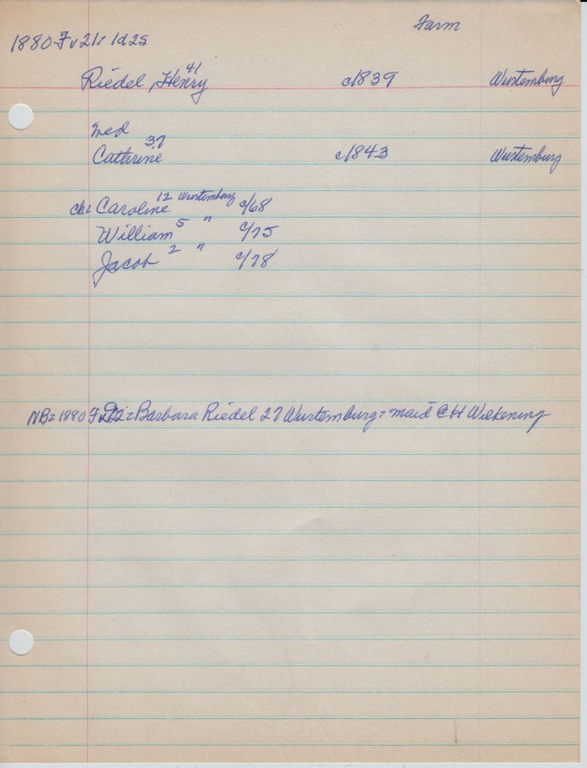 Farm
1880 Fv21r 1d25
Riedel, Henry 41 c1839 Wurtemburg
med
Cathrine 37 c1843 Wurtemburg
ch: Caroline 12 Wurtemburg c/68
William 5 " c/75
Jacob 2 " c/78
NB: 1880 Barbara Riedel 27 Wurtemburg = maid CH Wiekening